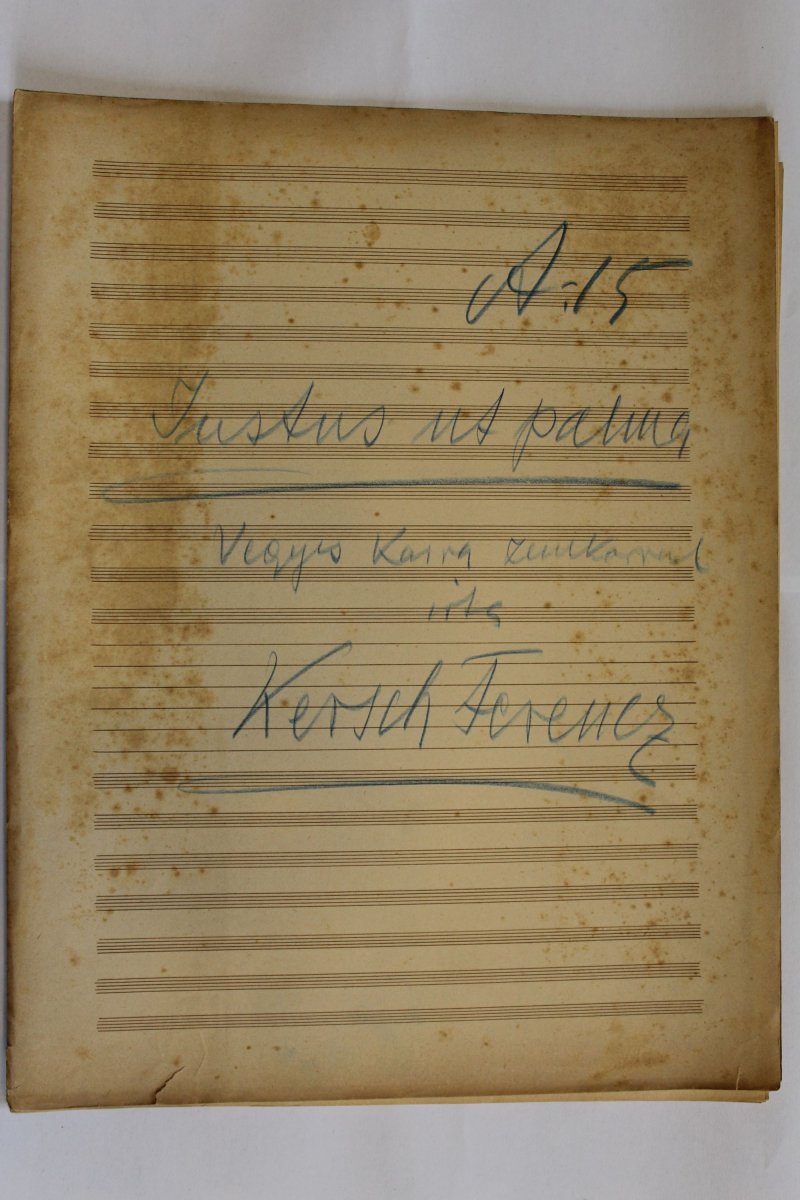 A:15
Justus ut palma
Vegyes Karra zenekarral
irta
Kersch Ferencz